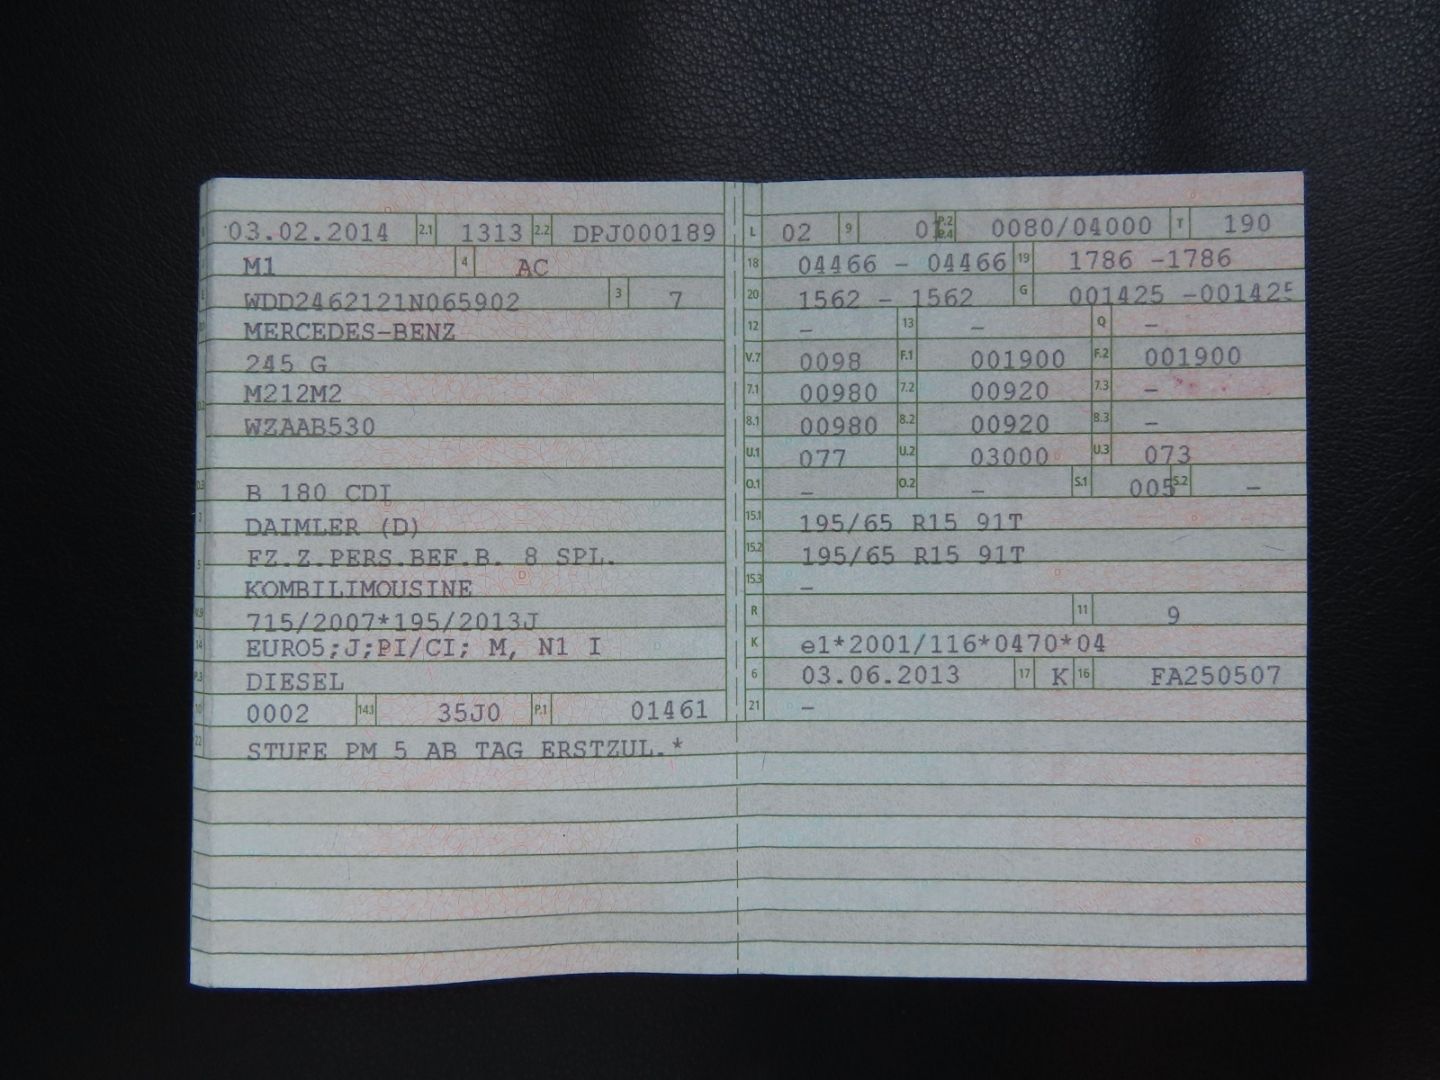 03.02.2014 2.1 1313 2.2 DPJ000189
M1 4 AC
WDD2462121N065902 3 7
MERCEDES-BENZ
245 G
M212M2
WZAAB530
D.3 B 180 CDI
2 DAIMLER (D)
5 FZ.Z.PERS.BEF.B. 8 SPL.
KOMBILIMOUSINE
V.9 715/2007*195/2013J
14 EURO5;J;PI/CI; M, N1 I
P.3 DIESEL
10 0002 14.1 35J0 P.1 01461
22 STUFE PM 5 AB TAG ERSTZUL.*
L 02 9 01 P.2 P.4 0080/04000 T 190
18 04466 - 04466 19 1786 -1786
20 1562 - 1562 G 001425 -001425
12 - 13 - Q -
V.7 0098 F.1 001900 F.2 001900
7.1 00980 7.2 00920 7.3 -
8.1 00980 8.2 00920 8.3 -
U.1 077 U.2 03000 U.3 073
O.1 - O.2 - S.1 005 S.2 -
15.1 195/65 R15 91T
15.2 195/65 R15 91T
15.3 -
R 11 9
K e1*2001/116*0470*04
6 03.06.2013 17 K 16 FA250507
21 -